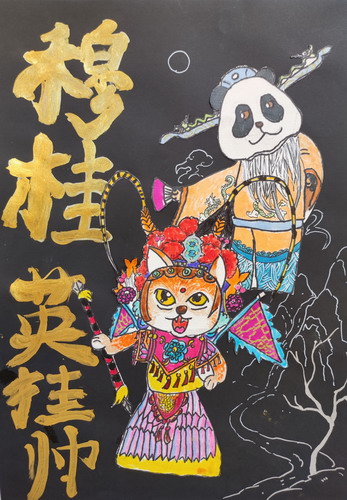 穆桂英挂帅